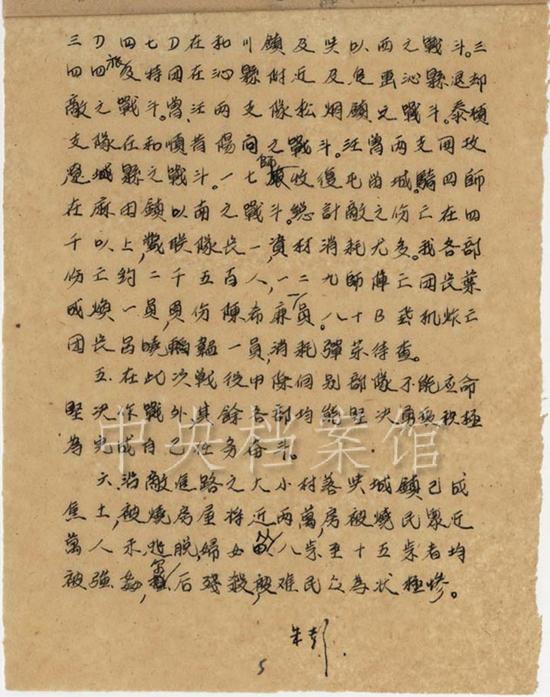 三刀四七刀在和川鎮及吳以西之戰斗。三
四四旅及特团在沁縣附近及危害沁縣退却
敵之戰斗。曾、汪两支隊松烟鎮之戰斗。秦頓
支隊在和順昔陽间之戰斗。汪曾两支回攻
遼城縣之戰斗。一七師收復屯留城。騎四師
在麻田鎮以南之戰斗。總計敵之伤亡在四
千以上，斃联隊長一，資材消耗尤多。我各部
伤亡約二千五百人，一二九師陣亡团長葉
成煥一員，負伤陳希廉一員。八十日裝机炸亡
团長呂曉韞一員，消耗彈葯待查。
五、在此次戦役中除個别部隊不能应命
堅决作戰外其餘各部均能堅决勇敢积極
為完成自己任务奋斗。
六、沿敵進路之大小村落與城鎮已成
焦土，被燒房屋将近两萬，房被燒民眾近
萬人未逃脱，婦女由八歲至十五歲者均
被強姦，后殘殺，被难民众為狀極慘。
朱彭
5
中央档案馆